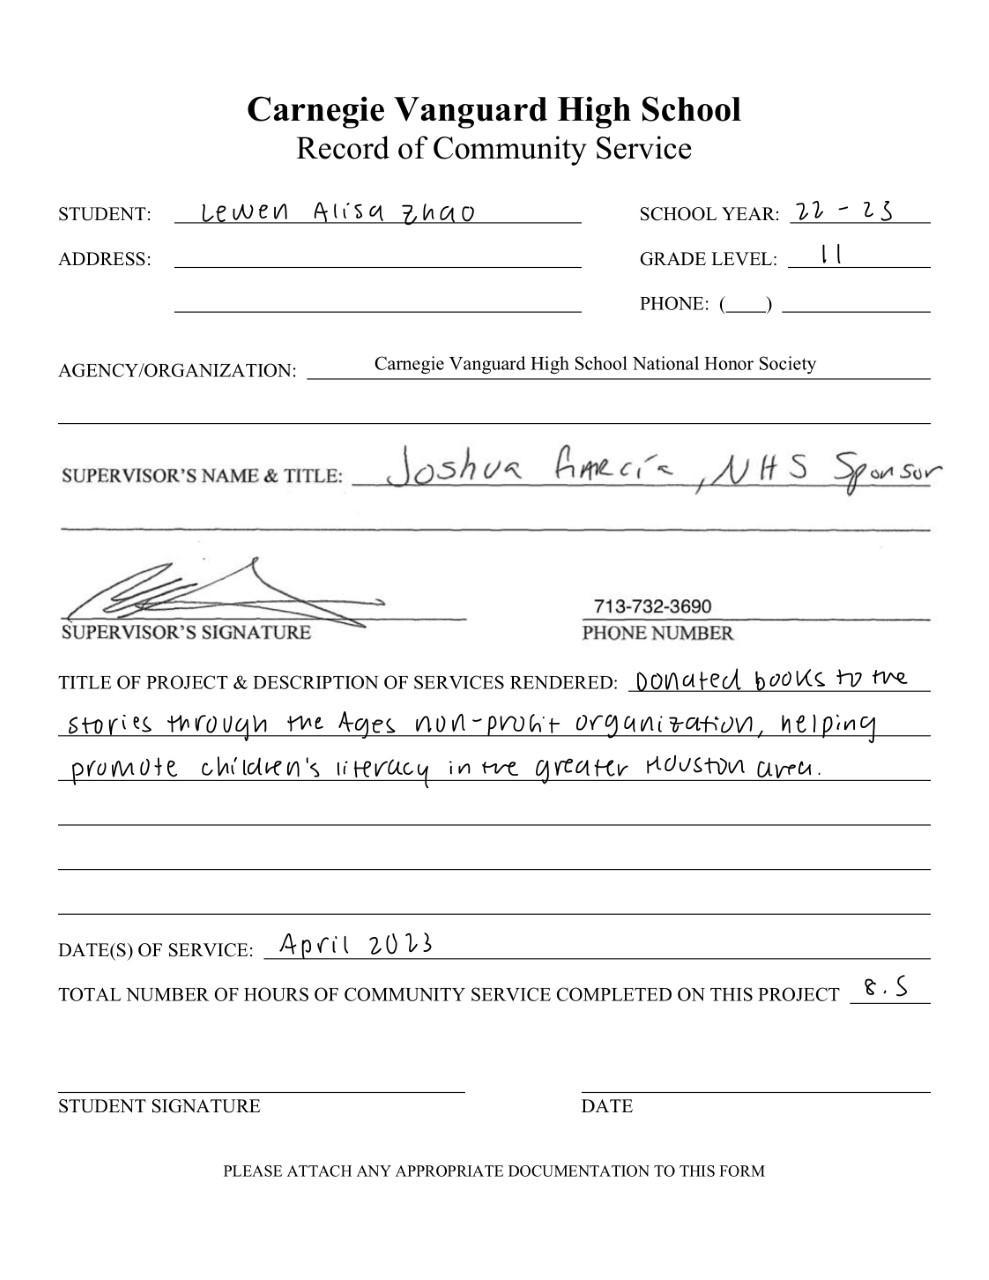 Carnegie Vanguard High School
Record of Community Service
STUDENT: Lewen Alisa Zhao SCHOOL YEAR: 22 - 23
ADDRESS: GRADE LEVEL: 11
PHONE: (____)
AGENCY/ORGANIZATION: Carnegie Vanguard High School National Honor Society
SUPERVISOR'S NAME & TITLE: Joshua García, NHS Sponsor
713-732-3690
SUPERVISOR'S SIGNATURE PHONE NUMBER
TITLE OF PROJECT & DESCRIPTION OF SERVICES RENDERED: Donated books to the
stories through the Ages non-profit organization, helping
promote children's literacy in the greater Houston area.
DATE(S) OF SERVICE: April 2023
TOTAL NUMBER OF HOURS OF COMMUNITY SERVICE COMPLETED ON THIS PROJECT 8.5
STUDENT SIGNATURE DATE
PLEASE ATTACH ANY APPROPRIATE DOCUMENTATION TO THIS FORM